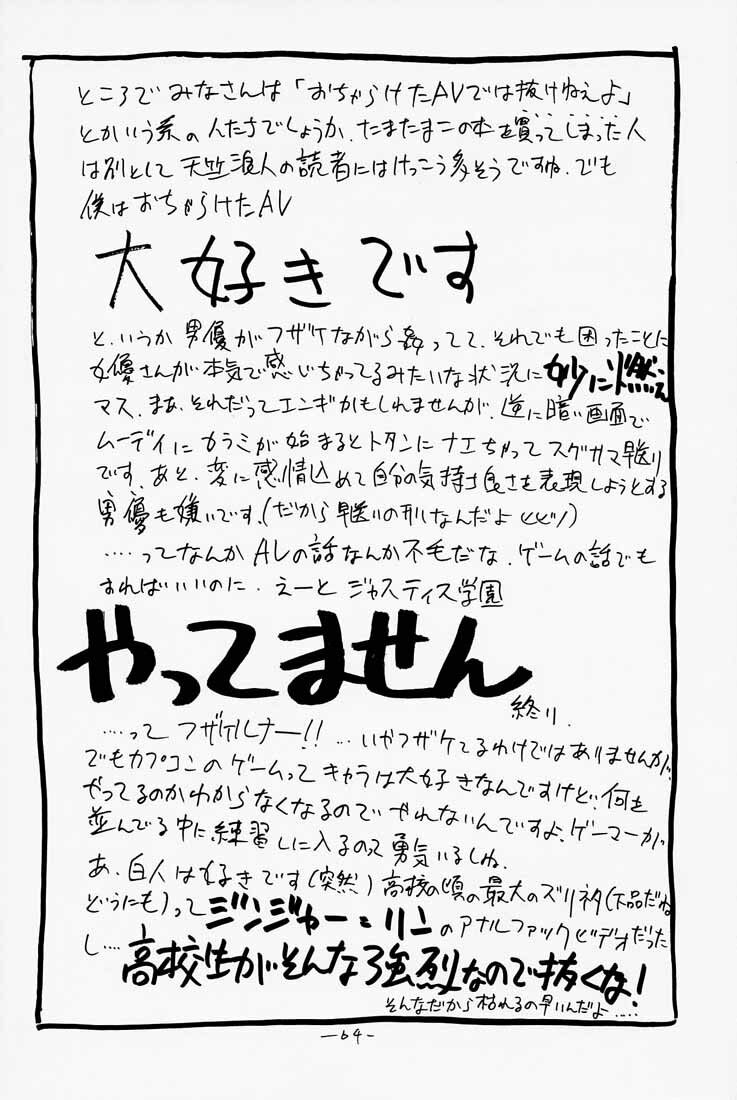 ところで みなさんは「おちゃらけたAVでは抜けねえよ」
とかいう系の人たちでしょうか、たまたまこの本を買ってしまった人
は別として 天竺浪人の読者にはけっこう多そうですね。でも
僕はおちゃらけたAV
大好きです
と、いうか 男優がフザケながら姦ってて、それでも困ったことに
女優さんが本気で感じちゃってるみたいな状況に 妙に燃え
マス。まあ、それだってエンギかもしれませんが、逆に暗い画面で
ムーディに カラミが始まるとトタンに ナエちゃって スグサマ早送り
です。あと、変に感情込めて自分の気持ち良さを表現しようとする
男優も嫌いです。(だから早送りの刑なんだよ
‥‥ってなんか AVの話なんか不毛だな、ゲームの話でも
すればいいのに。えーと ジャスティス学園
やってません
終り.
‥‥って フザケルナー!! …いやフザケてるわけではありませんが、
でもカプコンのゲームって キャラは大好きなんですけど、何を
やってるのかわからなくなるので やれないんですよ、ゲーマーが
並んでる中に練習しに入るのって 勇気いるしね。
あ、白人は好きです(突然)高校の頃の最大のズリネタ(下品だね
どうにも)って ジンジャー=リン のアナルファックビデオだった
し‥‥高校生がそんな強烈なので抜くな!
そんなだから枯れるの早いんだよ‥‥
-64-